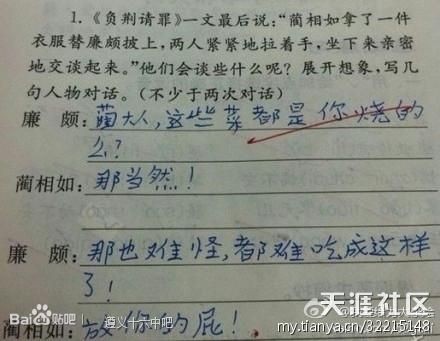 1.《负荆请罪》一文最后说:“蔺相如拿了一件
衣服替廉颇披上,两人紧紧地拉着手,坐下来亲密
地交谈起来。”他们会谈些什么呢?展开想象,写几
句人物对话。(不少于两次对话)
廉 颇:蔺大人,这些菜都是你烧的
么?
蔺相如:那当然!
廉 颇:那也难怪,都难吃成这样
了!
蔺相如:放你的屁!
Bai百度贴吧
遵义十六中吧
天涯社区
my.tianya.cn/32215148